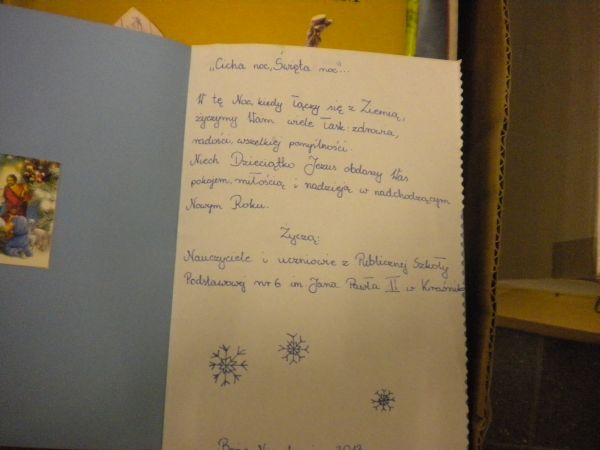 „Cicha noc, Święta noc"...
W tę Noc, kiedy łączy się z Ziemią,
życzymy Wam wiele łask: zdrowia,
radości, wszelkiej pomyślności.
Niech Dzieciątko Jezus obdarzy Was
pokojem, miłością i nadzieją w nadchodzącym
Nowym Roku.
Życzą:
Nauczyciele i uczniowie z Publicznej Szkoły
Podstawowej nr 6 im. Jana Pawła II w